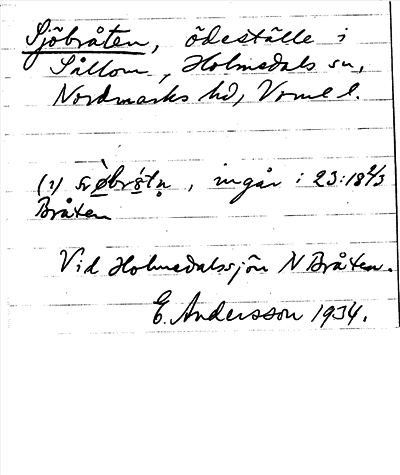 Sjöbråten, ödeställe i
Sållom, Holmedals sn,
Nordmarks hd, Vrml l.
(i) , ingår i 23:18 2/3
Bråten
Vid Holmedalssjön N Bråten.
E. Andersson 1934.